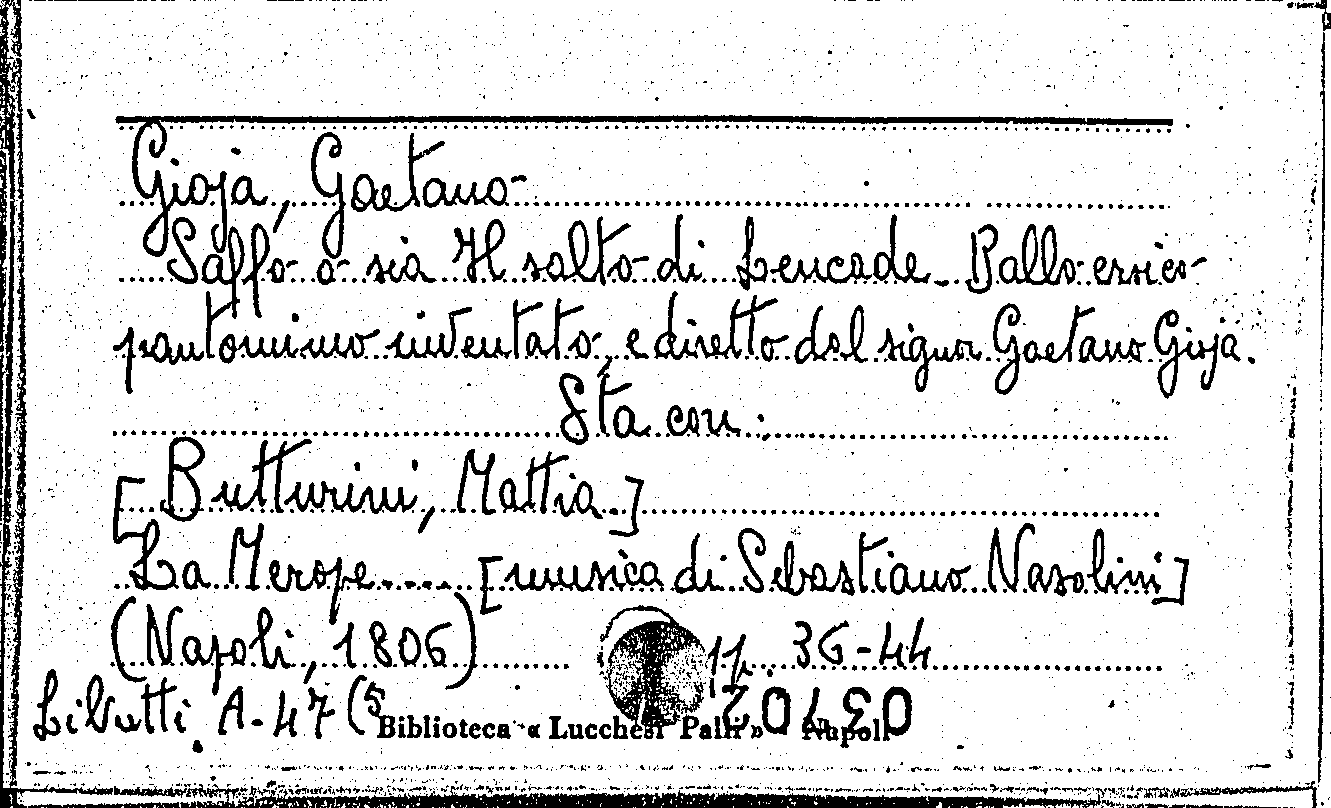 Gioja, Gaetano
Saffo o sia Il salto di Leucade. Ballo eroico
pantomimo inventato, e diretto dal signor Gaetano Gioja.
Sta con:
[Butturini, Mattia.]
La Merope..... [musica di Sebastiano Nasolini]
(Napoli, 1806) pp. 36-44
Libretti A-47 (5
Biblioteca « Lucchesi Palli » Napoli